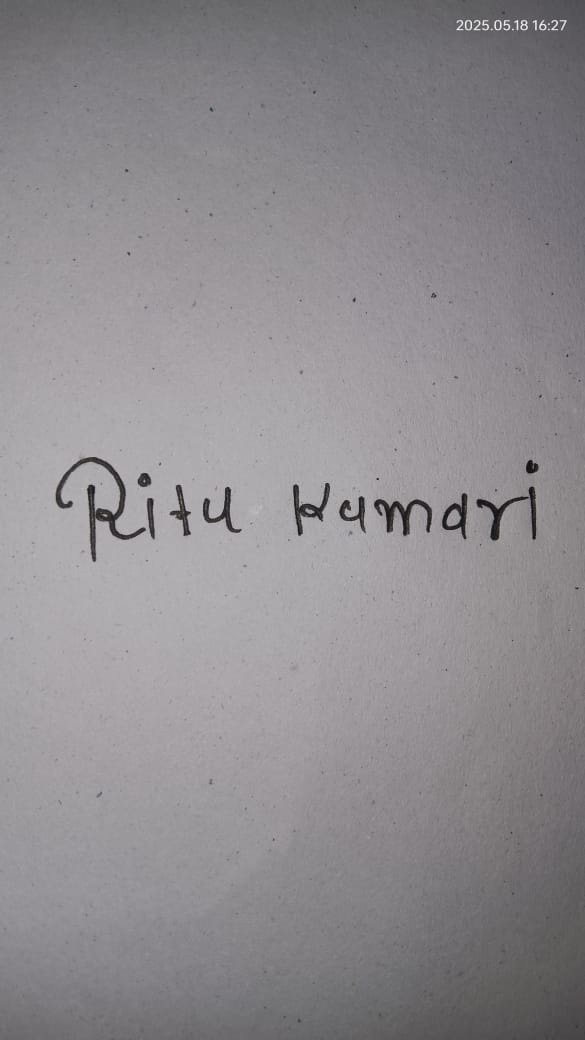 2025.05.18 16:27
Ritu Kumari